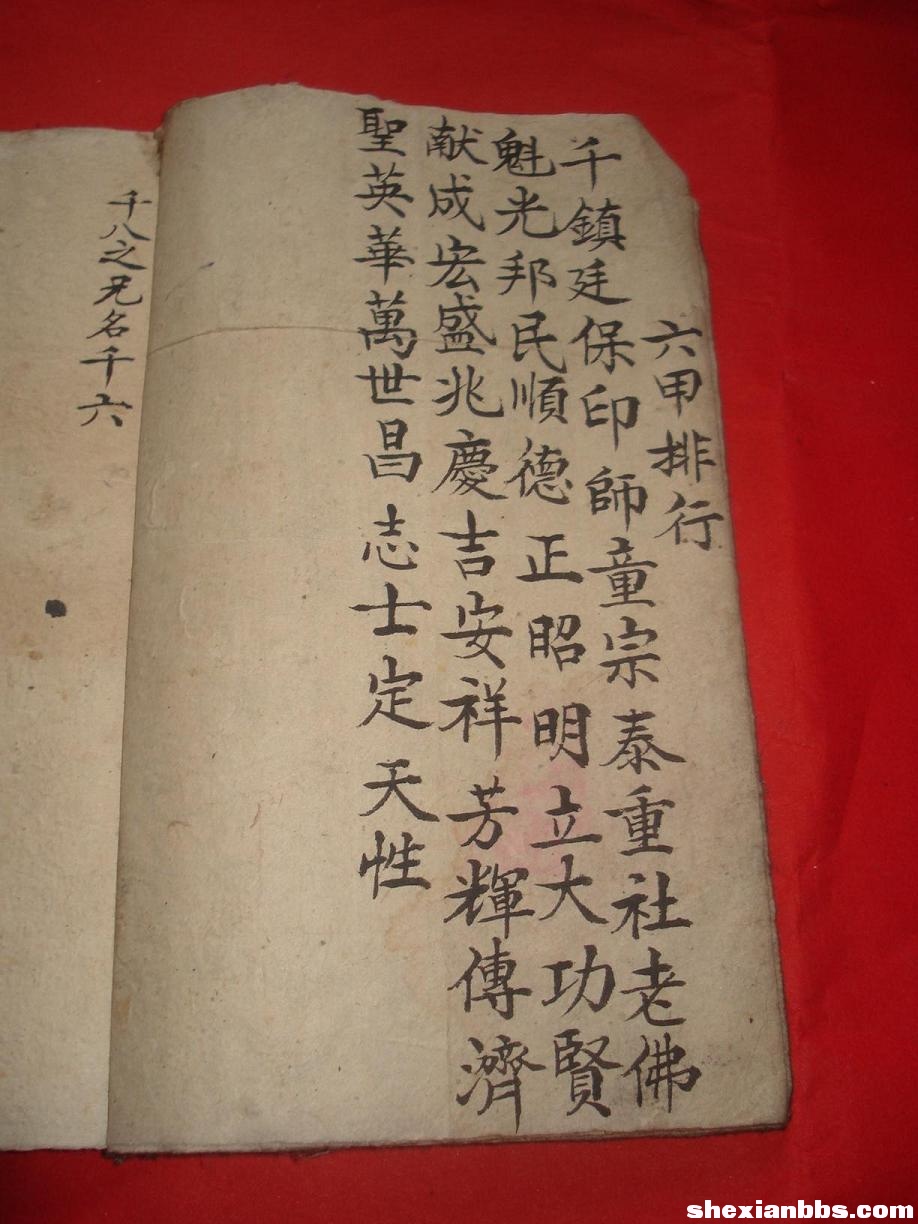 六甲排行
千鎮廷保印師童宗泰重社老佛
魁光邦民順德正昭明立大功賢
献成宏盛兆慶吉安祥芳輝傳濟
聖英華萬世昌志士定天性
千八之兄名千六
shexianbbs.com